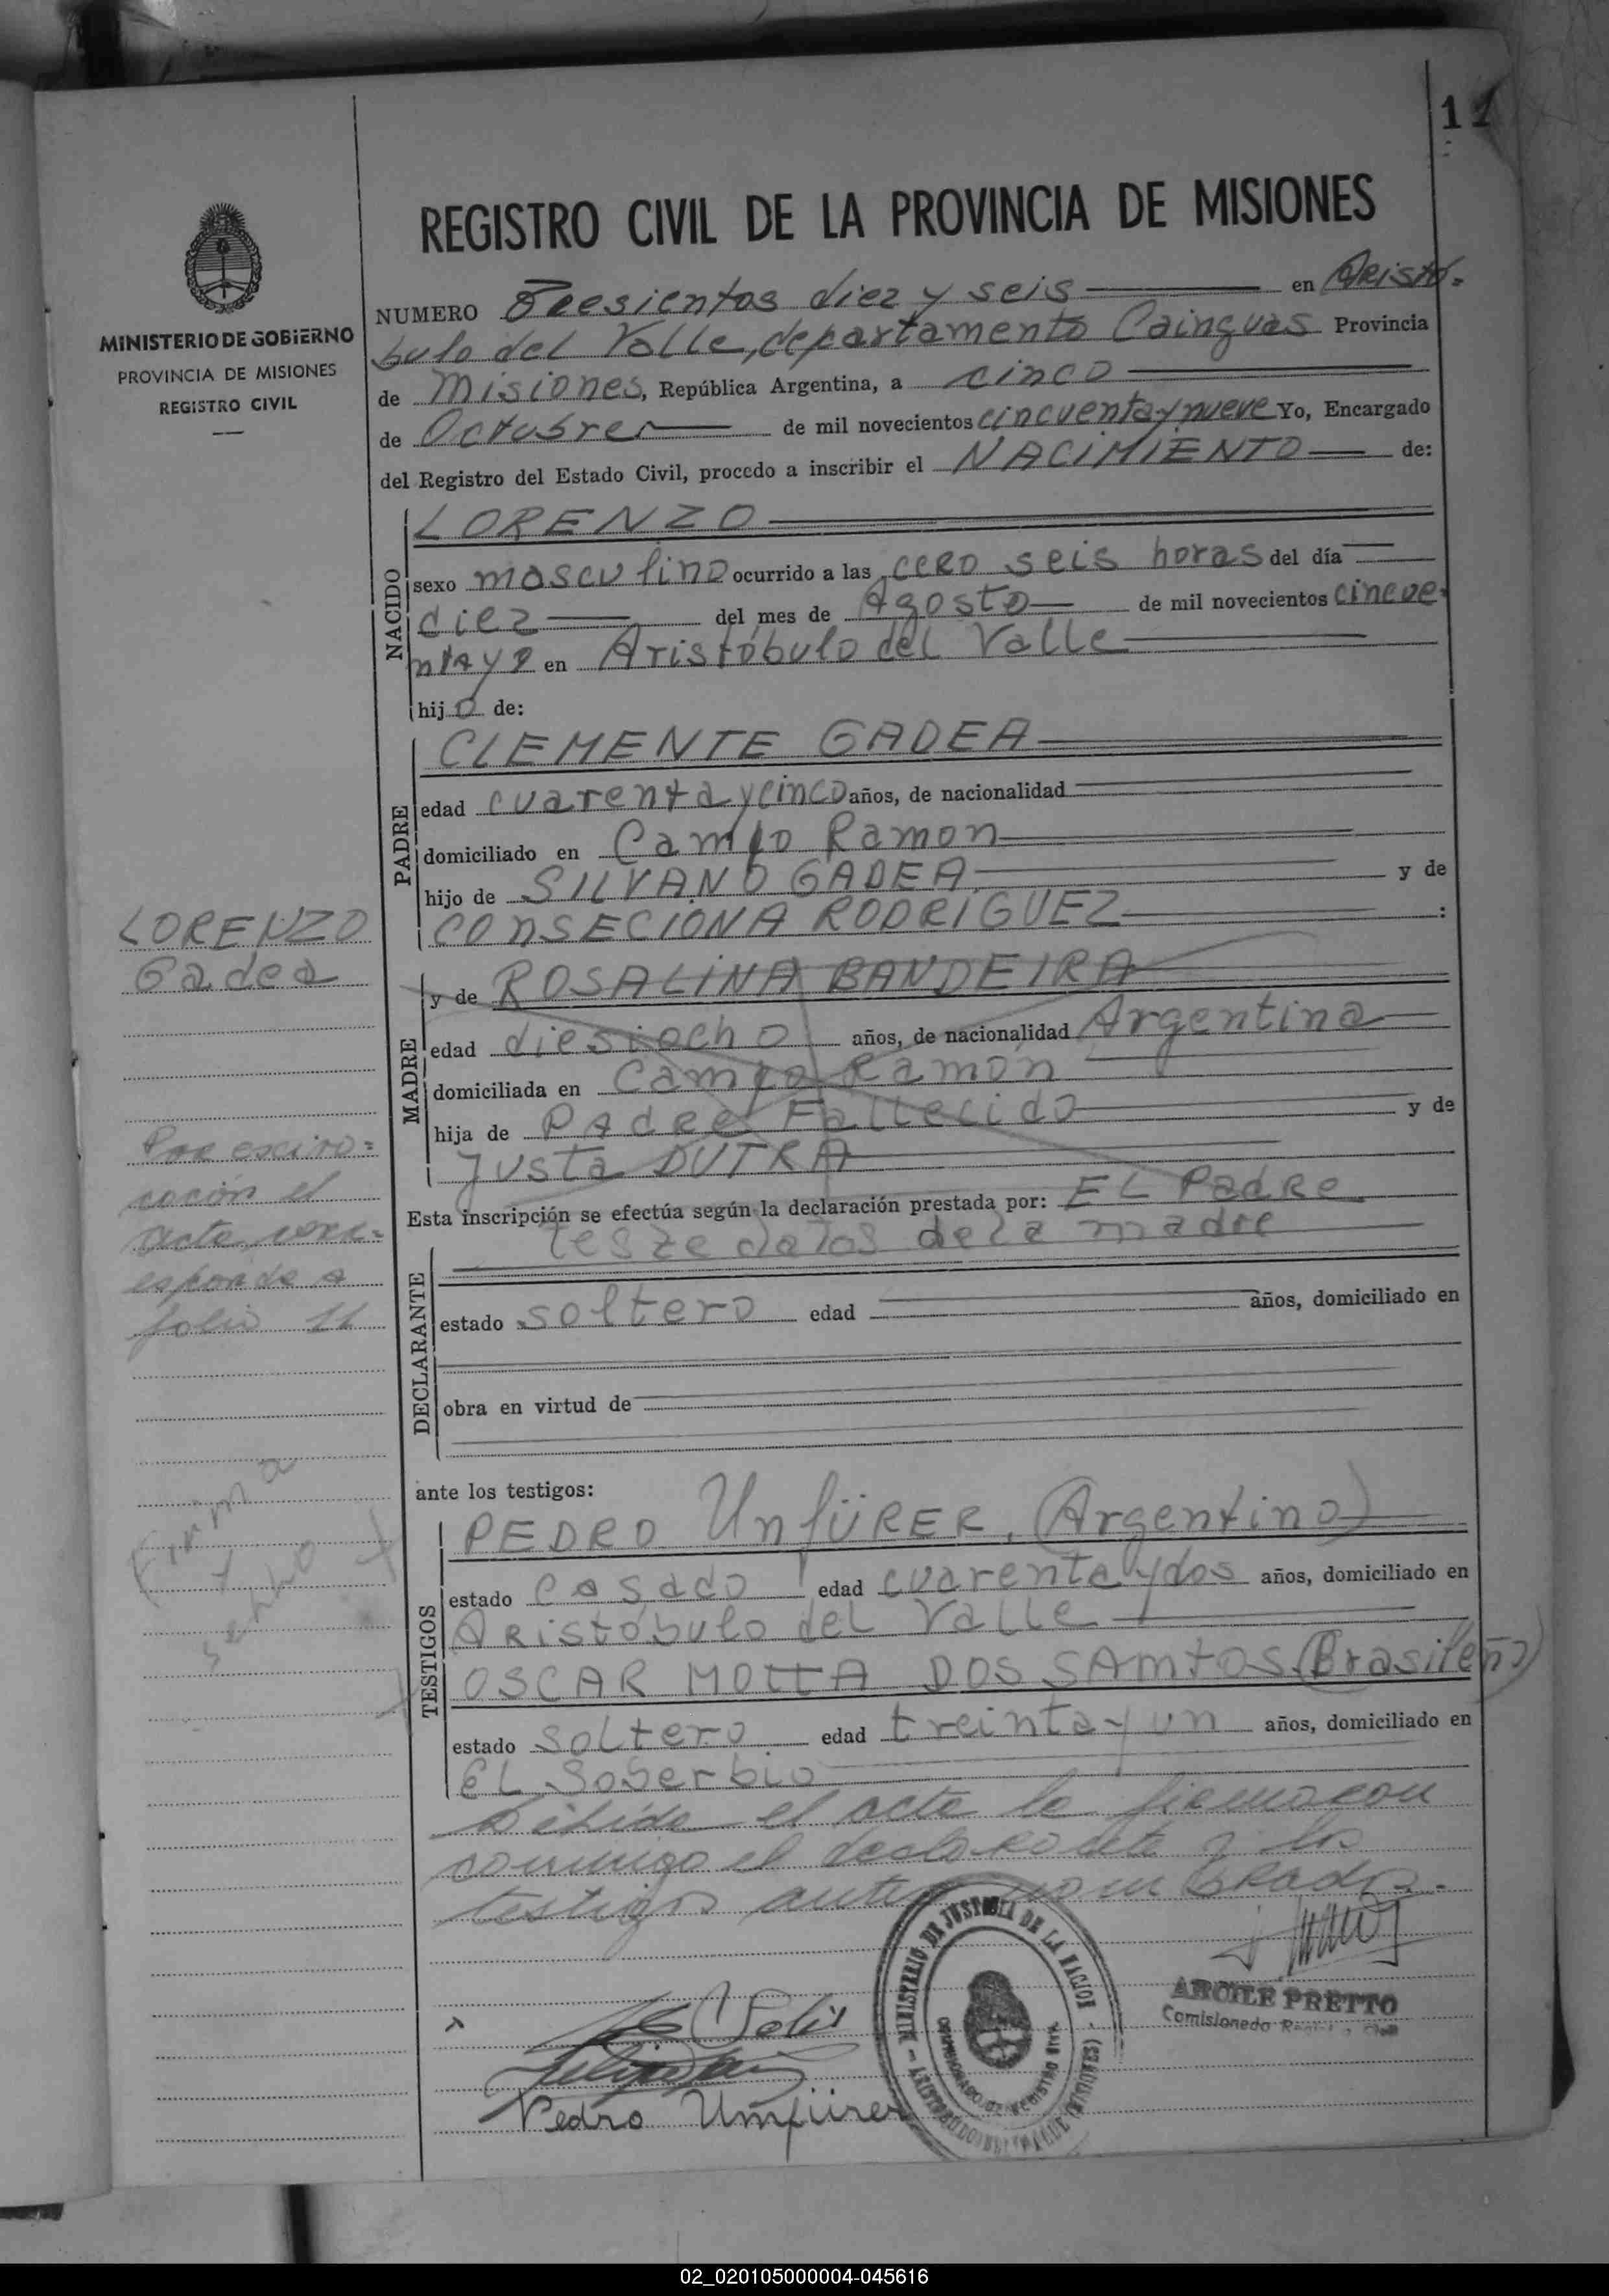 11
REGISTRO CIVIL DE LA PROVINCIA DE MISIONES
MINISTERIO DE GOBIERNO
PROVINCIA DE MISIONES
REGISTRO CIVIL
NUMERO Tresientos diez y seis en Aristó-
bulo del Valle, departamento Cainguas Provincia
de Misiones, República Argentina, a cinco
de Octubre de mil novecientos cincuenta y nueve Yo, Encargado
del Registro del Estado Civil, procedo a inscribir el NACIMIENTO de:
NACIDO
LORENZO
sexo masculino ocurrido a las cero seis horas del día
diez del mes de Agosto de mil novecientos cincue-
nta y 9 en Aristóbulo del Valle
hijo de:
PADRE
CLEMENTE GADEA
edad cuarenta y cinco años, de nacionalidad
domiciliado en Campo Ramon
hijo de SILVANO GADEA y de
CONSECIONA RODRIGUEZ
LORENZO
Gadea
MADRE
y de ROSALINA BANDEIRA
edad diesiocho años, de nacionalidad Argentina
domiciliada en Campo Ramón
hija de Padre Fallecido y de
Justa DUTRA
Por
el
acta
esponde a
folio 11
Esta inscripción se efectúa según la declaración prestada por: EL Padre
datos de la madre
DECLARANTE
estado soltero edad años, domiciliado en
obra en virtud de
Firma
y
ante los testigos:
TESTIGOS
PEDRO UnfüRER, (Argentino)
estado casado edad cuarenta y dos años, domiciliado en
Aristóbulo del Valle
OSCAR MOTTA DOS SAMTOS (Brasileño)
estado soltero edad treinta y un años, domiciliado en
EL Soberbio
el acta la firma con
conmigo el declarante y los
testigos antes nombrados.-
MINISTERIO DE JUSTICIA DE LA NACION
ARCILE PRETTO
Comisionado Registro Civil
Pedro Umfürer
02_020105000004-045616